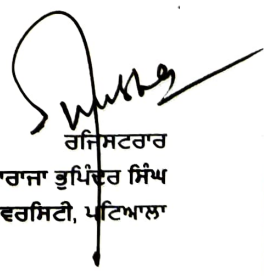 ਰਜਿਸਟਰਾਰ
ਰਾਜਾ ਭੁਪਿੰਦਰ ਸਿੰਘ
ਵਰਸਿਟੀ, ਪਟਿਆਲਾ